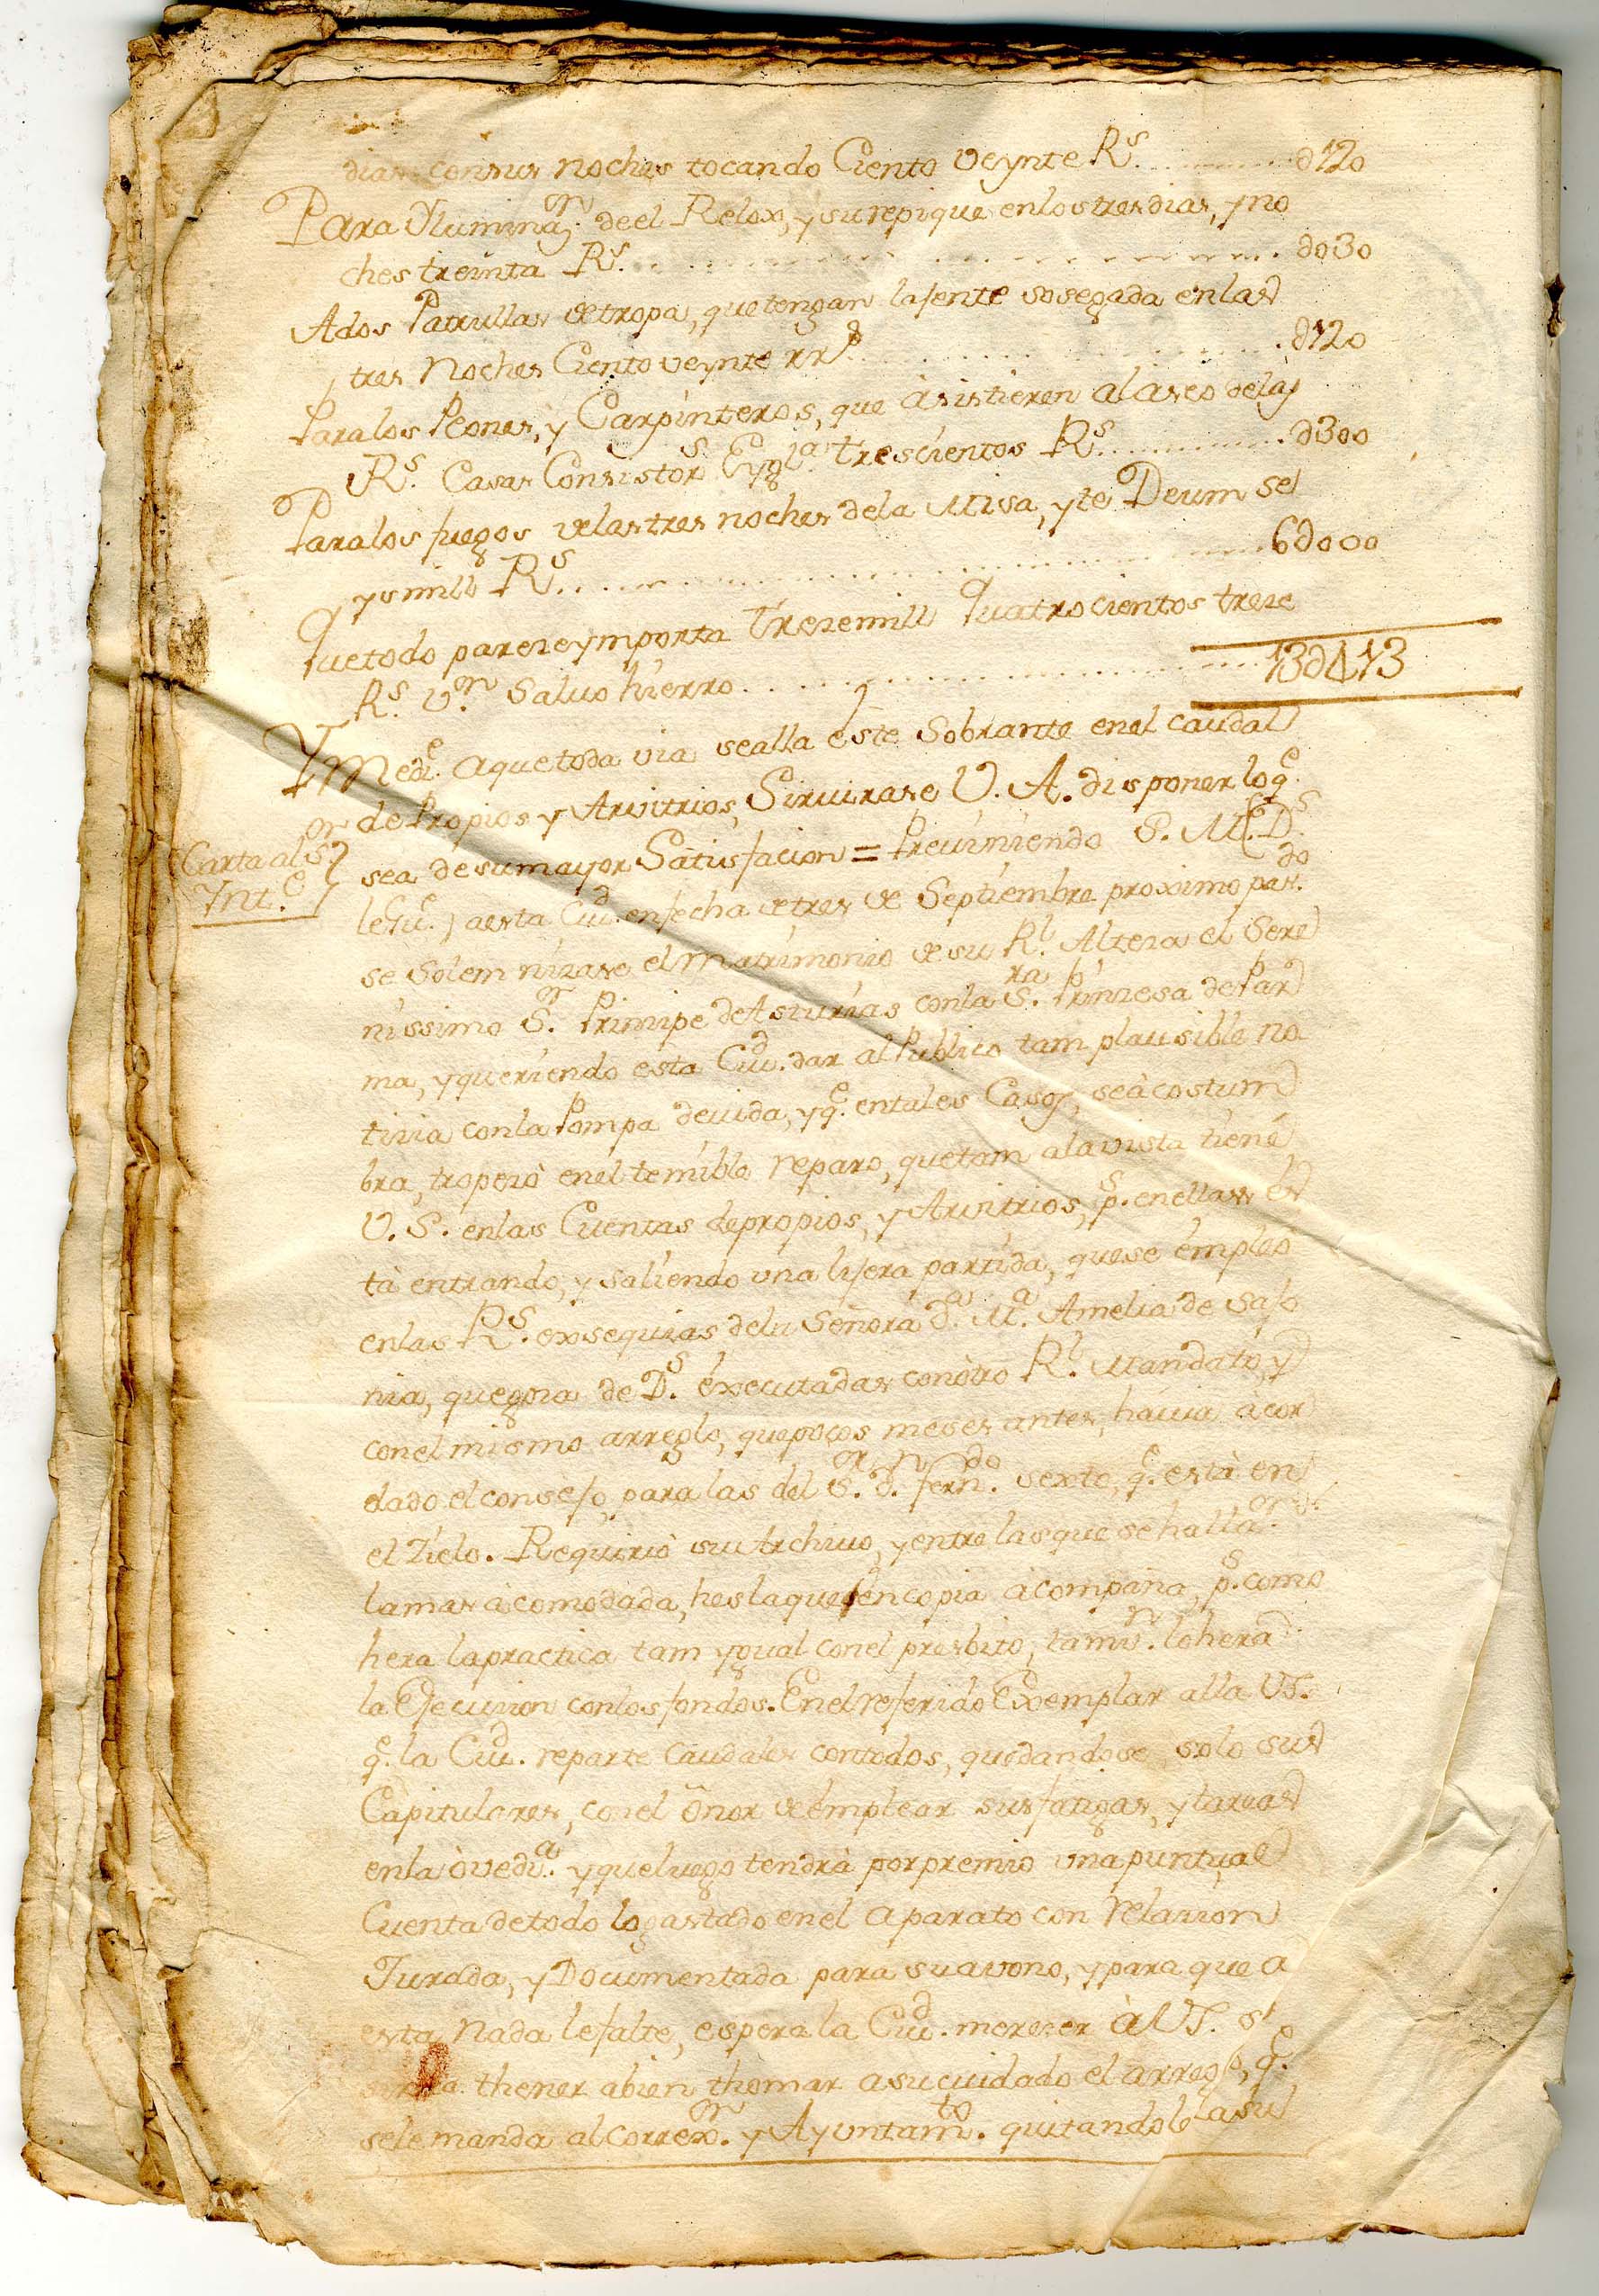 dias consus noches tocando Ciento veynte R.s ........ d120
Para Yluminaz.on de el Relox, y su repique enlos tres dias, y no
ches treinta R.s ........ d030
Ados Patrullas de tropa, que tengan lajente sosegada en las
tres Noches Ciento veynte rr.s ........ d120
Paralos Peones, y Carpinteros, que asistieren al aseo delas
R.s Casas Consistor.s E Ygl.a trescientos R.s ........ d300
Paralos fuegos delas tres noches dela Misa, y te Deum se
ys mill R.s ........ 6d000
Que todo pareze ymporta Treze mill Quatrocientos treze
R.s V.n Salvo hierro ........ 13d413
Y Medi.e aque toda via sealla este Sobrante enel caudal
de Propios y Arvitrios, Sirvirase V. A. disponer lo q.e
sea desumayor Satisfacion = Previniendo S. M. (q.e D.s
Carta al S.or
Int.e
le Gu.e) aesta Ciu.d en fecha de tres de Septiembre proximo pas.do
se solemnizase el Matrimonio de su R.l Alteza el Sere
nissimo S.or Principe de Asturias conla S.ra Princesa de Par
ma, y queriendo esta Ciu.d dar al Publico tam plausible no
ticia conla Pompa devida, y q.e entales Casos, seàcostum
bra, tropezò enel temible reparo, quetam alavista tiene
V. S. enlas Cuentas depropios, y Arvitrios, p.s enellas es
tà entrando, y saliendo una lijera partida, quese empleo
enlas R.s exsequias dela Señora D.a M.a Amelia de Sajo
nia, quegoza de D.s executadas conòtro R.l Mandato, y
conel mismo arreglo, quepocos meses antes, havia àcor
dado el consejo, para las del S.or D.n Fern.do sexto, q.e està en
el Zielo. Requiriò su Archivo, y entre las que se halla
lamas àcomodada, hes laque en copia àcompaña, p.s como
hera lapractica tam ygual conel presbito, tamv.n lohera
la Ejecucion conlos fondos. Enel referido Exemplar alla VS.
q.e la Ciu.d reparte Caudales contodos, quedandose solo sus
Capitulares, conel Onor de emplear sus fatigas, y tareas
enla òvedi.a y que luego tendrà por premio una puntual
Cuenta detodo lo gastado enel aparato con Relazion
Jurada, y Documentada para su avono, y para que a
esta Nada lefalte, espera la Ciu.d merezer à VS. s
thener abien thomar asu cuidado el arreglo, q.e
sele manda al Correx.or y Ayuntam.to quitandole la su